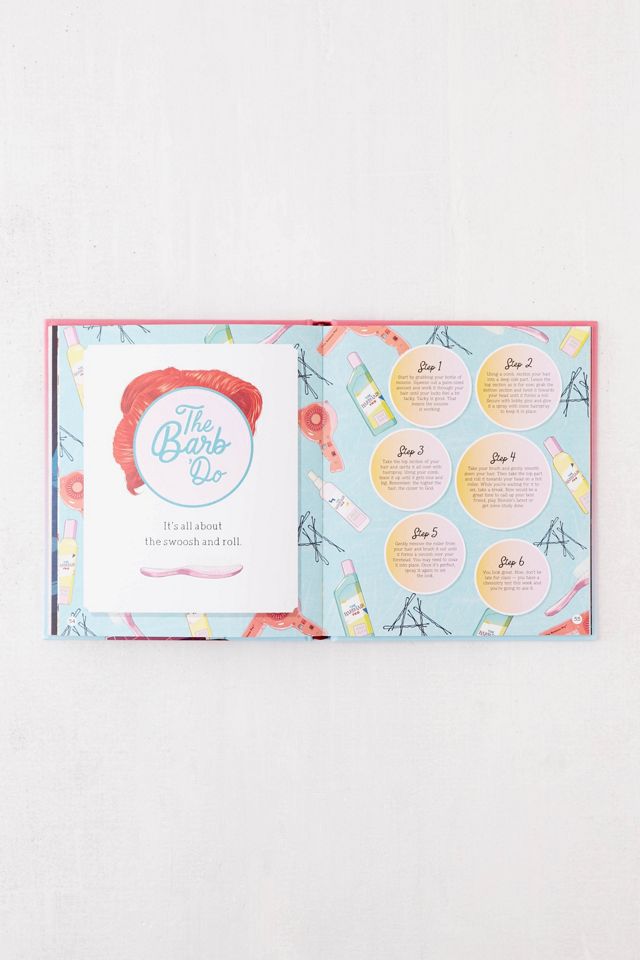 The
Barb
'Do
It's all about
the swoosh and roll.
54
Step 1
Start by grabbing your bottle of
mousse. Squeeze out a palm-sized
amount and work it through your
hair until your locks feel a bit
tacky. Tacky is good. That
means the mousse
is working.
Step 2
Using a comb, section your hair
into a deep side part. Leave the
top section as is for now; grab the
bottom section and twist it towards
your head until it forms a roll.
Secure with bobby pins and give
it a spray with some hairspray
to keep it in place.
Step 3
Take the top section of your
hair and spritz it all over with
hairspray. Using your comb,
tease it up until it gets nice and
big. Remember: the higher the
hair, the closer to God.
Step 4
Take your brush and gently smooth
down your hair. Then take the top part
and roll it towards your head on a hot
roller. While you're waiting for it to
set, take a break. Now would be a
great time to call up your best
friend, play Blondie's latest or
get some study done.
Step 5
Gently remove the roller from
your hair and brush it out until
it forms a swoosh over your
forehead. You may need to coax
it into place. Once it's perfect,
spray it again to set
the look.
Step 6
You look great. Now, don't be
late for class — you have a
chemistry test this week and
you're going to ace it.
55